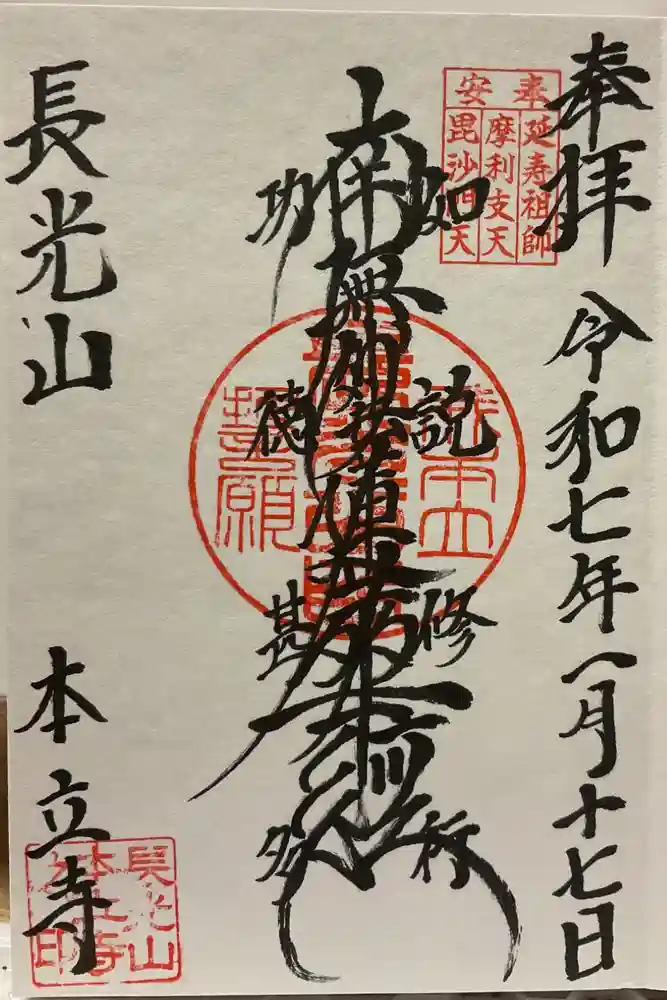 奉拝
令和七年一月十七日
奉安
延寿祖師
摩利支天
毘沙門天
如説修行
南無妙法蓮華経
功徳甚多
我本立
誓願
長光山
本立寺
長光山
本立寺
印